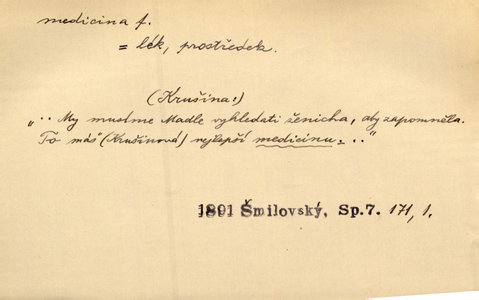 medicina f.
= lék, prostředek.
(Krušina:)
„.. My musíme Madle vyhledati ženicha, aby zapomněla.
To máš (Krušinová) nejlepší medicinu. .."
1891 Šmilovský, Sp.7. 171, 1.